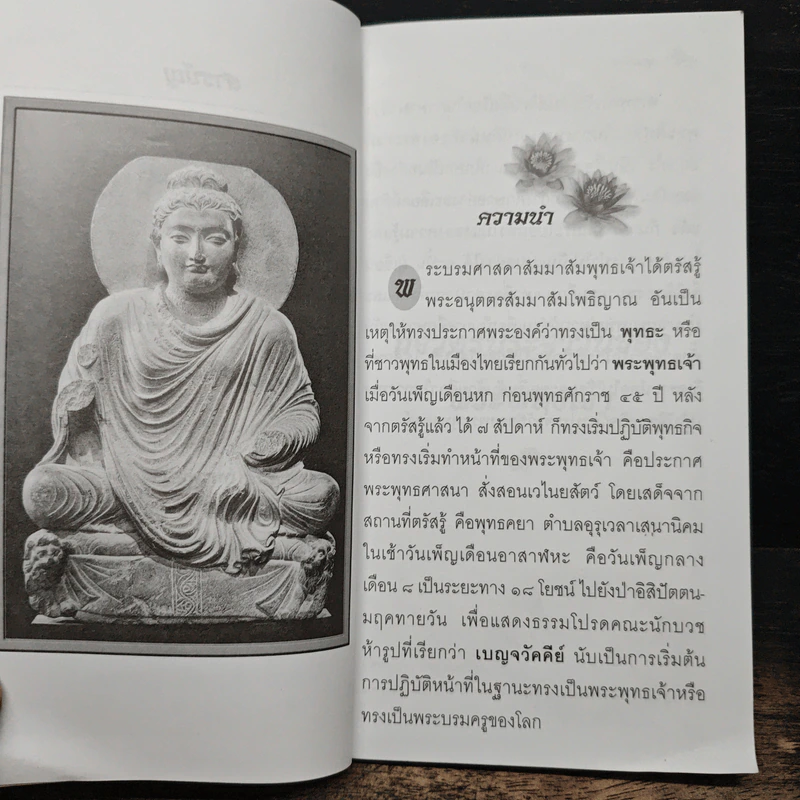 ความนำ
พระบรมศาสดาสัมมาสัมพุทธเจ้าได้ตรัสรู้
พระอนุตตรสัมมาสัมโพธิญาณ อันเป็น
เหตุให้ทรงประกาศพระองค์ว่าทรงเป็น พุทธะ หรือ
ที่ชาวพุทธในเมืองไทยเรียกกันทั่วไปว่า พระพุทธเจ้า
เมื่อวันเพ็ญเดือนหก ก่อนพุทธศักราช ๔๕ ปี หลัง
จากตรัสรู้แล้ว ได้ ๗ สัปดาห์ ก็ทรงเริ่มปฏิบัติพุทธกิจ
หรือทรงเริ่มทำหน้าที่ของพระพุทธเจ้า คือประกาศ
พระพุทธศาสนา สั่งสอนเวไนยสัตว์ โดยเสด็จจาก
สถานที่ตรัสรู้ คือพุทธคยา ตำบลอุรุเวลาเสนานิคม
ในเช้าวันเพ็ญเดือนอาสาฬหะ คือวันเพ็ญกลาง
เดือน ๘ เป็นระยะทาง ๑๘ โยชน์ ไปยังป่าอิสิปัตตน-
มฤคทายวัน เพื่อแสดงธรรมโปรดคณะนักบวช
ห้ารูปที่เรียกว่า เบญจวัคคีย์ นับเป็นการเริ่มต้น
การปฏิบัติหน้าที่ในฐานะทรงเป็นพระพุทธเจ้าหรือ
ทรงเป็นพระบรมครูของโลก